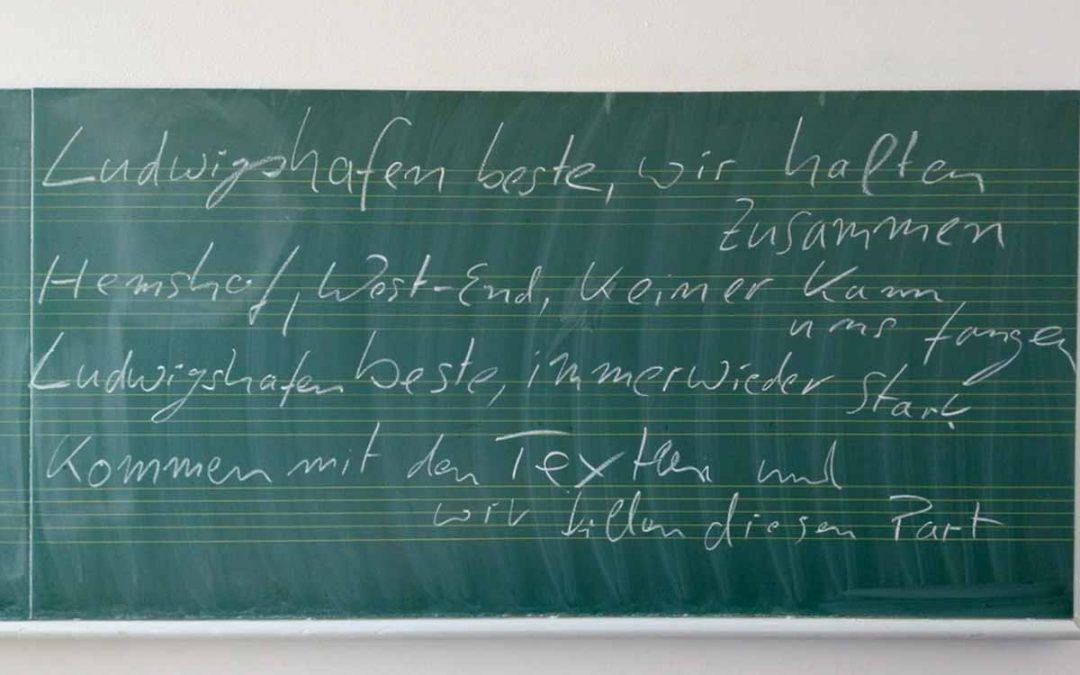 Ludwigshafen beste, wir halten
zusammen
Hemshof, West-End, keiner kann
uns fangen
Ludwigshafen beste, immer wieder stark
Kommen mit den Texten und
wir killen diesen Part